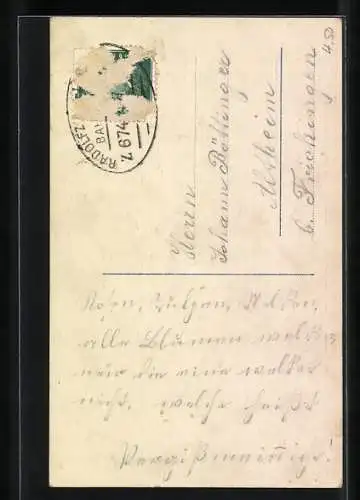 4,50
RADOLFZ
BA
Z 674
Herrn
Johann Böttinger
Altheim
b. Frickingen
Rosen, Tulpen, Nelken,
alle Blumen welken
nur die eine welket
nicht, welche heißt
Vergißmeinnicht!